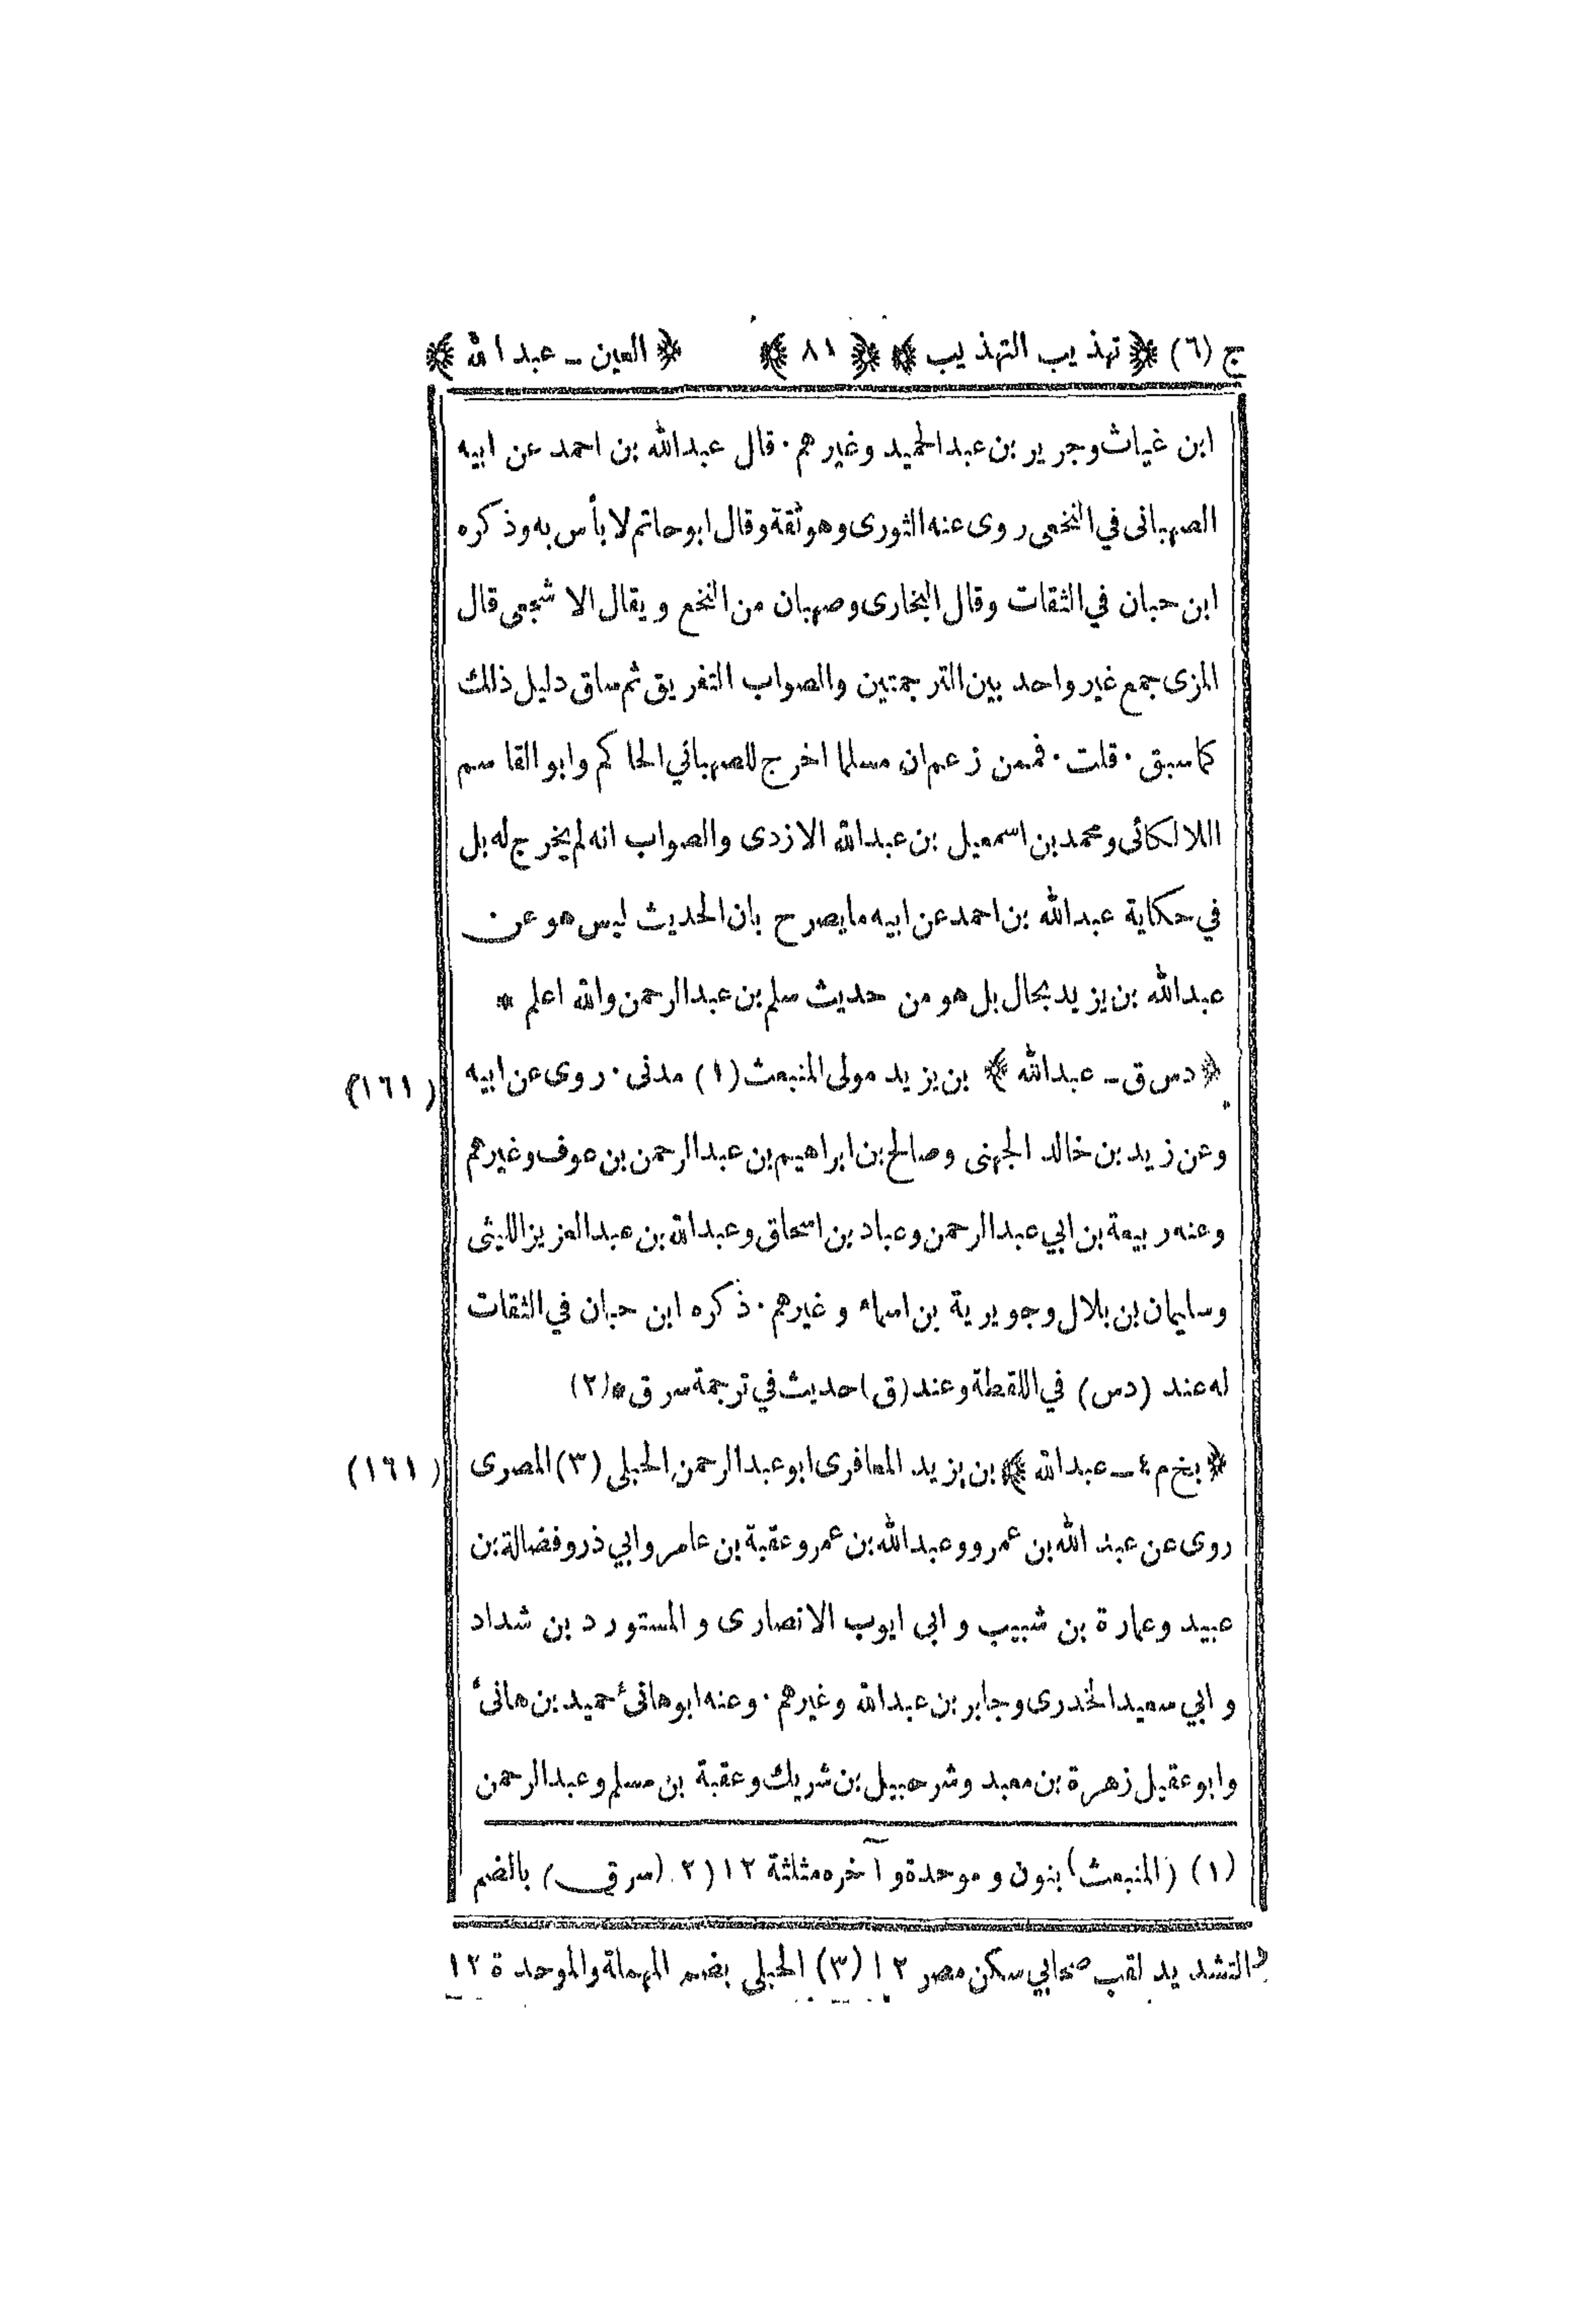 ج (٦) ﴿ تهذيب التهذيب ﴾ ﴿ ٨١ ﴾ ﴿ العين ــ عبد الله ﴾
ابن غياث وجرير بن عبد الحميد وغيرهم . قال عبد الله بن احمد عن ابيه
الصهبانى في النخعى روى عنه الثورى وهو ثقة وقال ابو حاتم لا بأس به وذكره
ابن حبان في الثقات وقال البخارى وصهبان من النخع ويقال الاشجعى قال
المزى جمع غير واحد بين الترجمتين والصواب التفريق ثم ساق دليل ذلك
كما سبق . قلت . فممن زعم ان مسلما اخرج للصهباني الحاكم وابو القاسم
اللالكائى ومحمد بن اسمعيل بن عبد الله الازدى والصواب انه لم يخرج له بل
في حكاية عبد الله بن احمد عن ابيه ما يصرح بان الحديث ليس هو عن
عبد الله بن يزيد بحال بل هو من حديث سلم بن عبد الرحمن والله اعلم *
﴿ د س ق ــ عبد الله ﴾ بن يزيد مولى المنبعث (١) مدنى . روى عن ابيه (١٦١)
وعن زيد بن خالد الجهنى وصالح بن ابراهيم بن عبد الرحمن بن عوف وغيرهم
وعنه ربيعة بن ابي عبد الرحمن وعباد بن اسحاق وعبد الله بن عبد العزيز الليثى
وسليمان بن بلال وجويرية بن اسماء وغيرهم . ذكره ابن حبان في الثقات
له عند (د س) في اللقطة وعند (ق) حديث في ترجمة سرق * (٢)
﴿ بخ م ٤ ــ عبد الله ﴾ بن يزيد المعافرى ابو عبد الرحمن الحبلى (٣) المصرى (١٦١)
روى عن عبد الله بن عمرو وعبد الله بن عمر وعقبة بن عامر وابي ذر وفضالة بن
عبيد وعمارة بن شبيب وابى ايوب الانصارى والمستورد بن شداد
وابي سعيد الخدرى وجابر بن عبد الله وغيرهم . وعنه ابو هانىء حميد بن هانىء
وابو عقيل زهرة بن معبد وشرحبيل بن شريك وعقبة بن مسلم وعبد الرحمن
(١) (المنبعث) بنون وموحدة وآخره مثلثة ١٢ (٢ (سرق) بالضم
والتشديد لقب صحابي سكن مصر ١٢ (٣) الحبلى بضم المهملة والموحدة ١٢